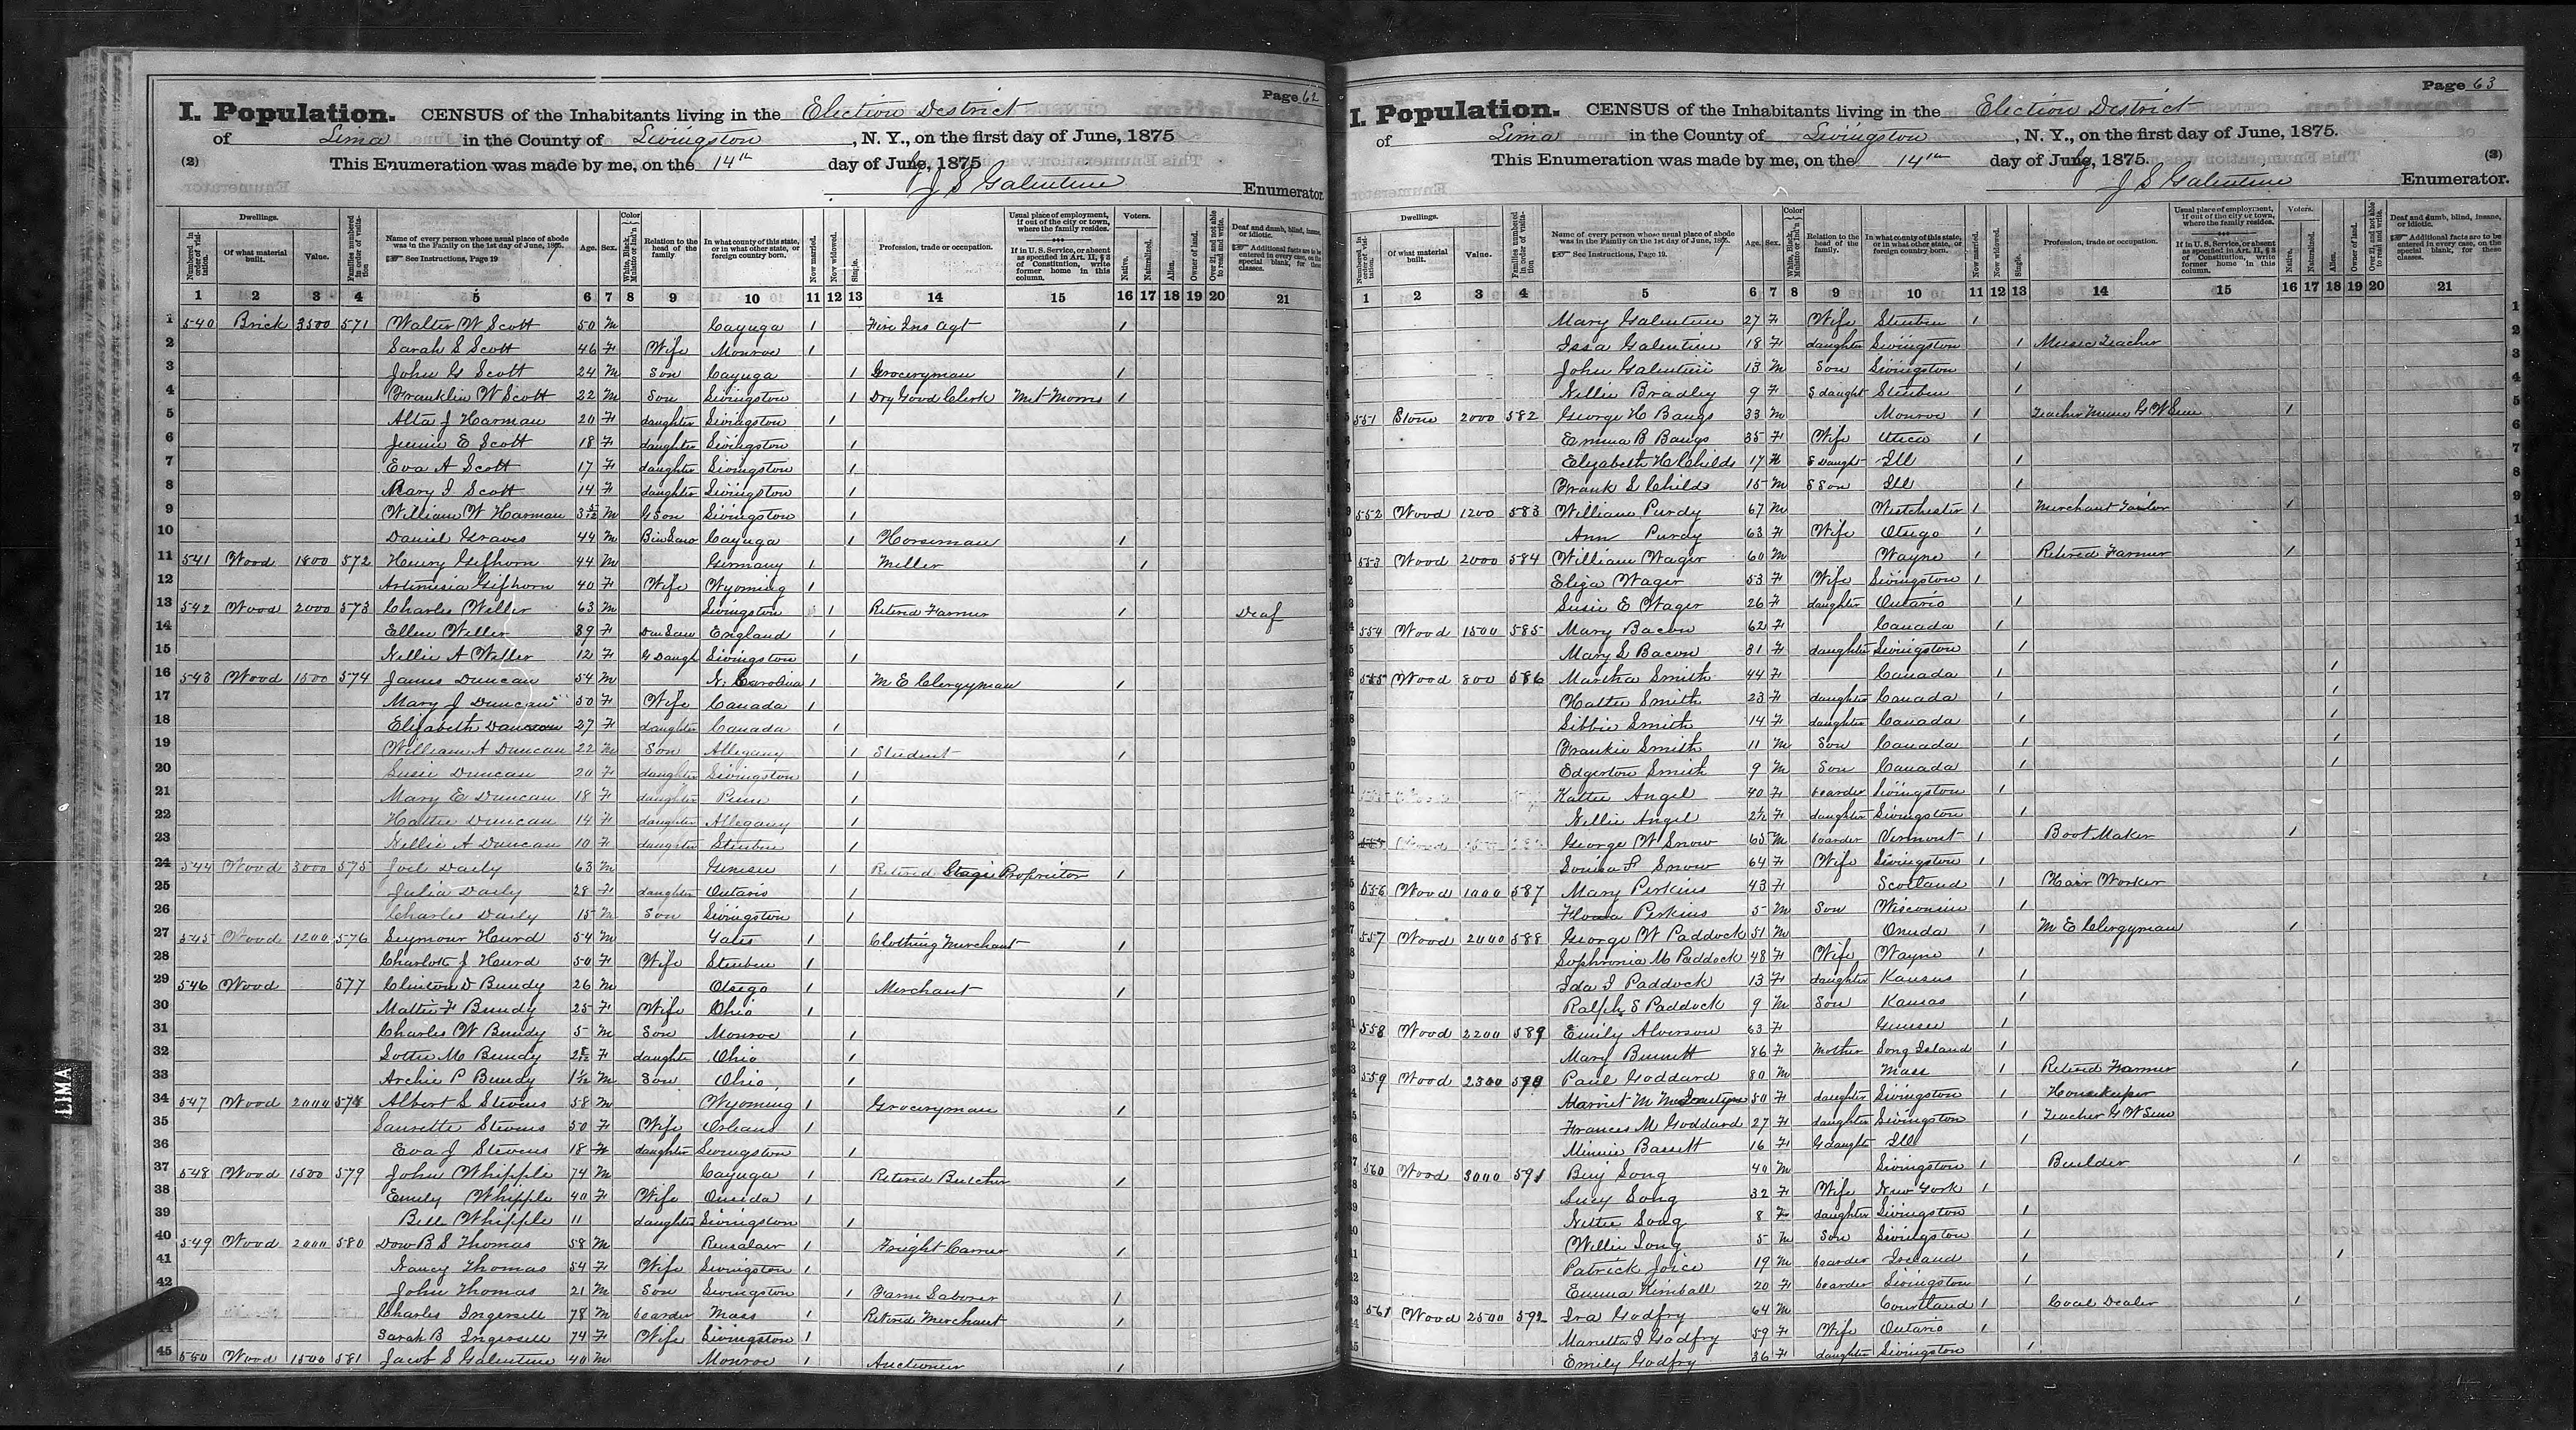 Page 62
I. Population. CENSUS of the Inhabitants living in the Election District
of Lima in the County of Livingston, N. Y., on the first day of June, 1875
(2) This Enumeration was made by me, on the 14th day of July, 1875
J S Galentine Enumerator.
Dwellings. Voters.
Numbered in order of visitation. Of what material built. Value. Families numbered in order of visitation Name of every person whose usual place of abode was in the Family on the 1st day of June, 1875. See Instructions, Page 19 Age. Sex. Color White, Black, Mulatto or Ind'n Relation to the head of the family. In what county of this state, or in what other state, or foreign country born. Now married. Now widowed. Single. Profession, trade or occupation. Usual place of employment, if out of the city or town, where the family resides. If in U. S. Service, or absent as specified in Art. II, § 2 of Constitution, write former home in this column. Native. Naturalized. Alien. Owner of land. Over 21, and not able to read and write. Deaf and dumb, blind, insane, or idiotic. Additional facts are to be entered in every case, on the special blank, for these classes.
1 2 3 4 5 6 7 8 9 10 11 12 13 14 15 16 17 18 19 20 21
1 540 Brick 3500 571 Walter W Scott 50 M Cayuga 1 Fire Ins Agt 1
2 Sarah S Scott 46 F Wife Monroe 1
3 John G Scott 24 M Son Cayuga 1 Groceryman 1
4 Franklin W Scott 22 M Son Livingston 1 Dry Good Clerk Mt Morris 1
5 Alta J Harman 20 F daughter Livingston 1
6 Jennie E Scott 18 F daughter Livingston 1
7 Eva A Scott 17 F daughter Livingston 1
8 Mary I Scott 14 F daughter Livingston 1
9 William W Harman 3 5/12 M G Son Livingston 1
10 Daniel Graves 44 M Bin Law Cayuga 1 Horseman 1
11 541 Wood 1800 572 Henry Gifhorn 44 M Germany 1 Miller 1
12 Artimisia Gifhorn 40 F Wife Wyoming 1
13 542 Wood 2000 573 Charles Weller 63 M Livingston 1 Retired Farmer 1 Deaf
14 Ellen Weller 39 F Dau Law England 1
15 Nellie A Weller 12 F G Daugh Livingston 1
16 543 Wood 1500 574 James Duncan 54 M N. Carolina 1 M E Clergyman 1
17 Mary J Duncan 50 F Wife Canada 1
18 Elizabeth 27 F daughter Canada 1
19 William A Duncan 22 M Son Allegany 1 Student 1
20 Susie Duncan 20 F daughter Livingston 1
21 Mary E Duncan 18 F daughter Penn 1
22 Hattie Duncan 14 F daughter Allegany 1
23 Nellie A Duncan 10 F daughter Steuben 1
24 544 Wood 3000 575 Joel Daily 63 M Genesee 1 Retired Stage Proprietor 1
25 Julia Daily 28 F daughter Ontario 1
26 Charles Daily 15 M Son Livingston 1
27 545 Wood 1200 576 Seymour Heurd 54 M Yates 1 Clothing Merchant 1
28 Charlott J Heurd 50 F Wife Steuben 1
29 546 Wood 577 Clinton D Bundy 26 M Otsego 1 Merchant 1
30 Mattie F Bundy 25 F Wife Ohio 1
31 Charles W Bundy 5 M Son Monroe 1
32 Lottie M Bundy F daughter Ohio 1
33 Archie P Bundy M Son Ohio 1
34 547 Wood 2000 578 Albert S Stevens 58 M Wyoming 1 Groceryman 1
35 Laurette Stevens 50 F Wife Orleans 1
36 Eva J Stevens 18 F daughter Livingston 1
37 548 Wood 1500 579 John Whipple 74 M Cayuga 1 Retired Butcher 1
38 Emily Whipple 40 F Wife Oneida 1
39 Bell Whipple 11 daughter Livingston 1
40 549 Wood 2000 580 Dow B S Thomas 58 M Rensalair 1 Fright Carrier 1
41 Nancy Thomas 54 F Wife Livingston 1
42 John Thomas 21 M Son Livingston 1 Farm Laborer 1
Charles Ingersell 78 M boarder Mass 1 Retired Merchant 1
44 Sarah B Ingersell 74 F Wife Livingston 1
45 550 Wood 1500 581 Jacob S Galentine 40 M Monroe 1 Auctioneer 1
LIMA
Page 63
I. Population. CENSUS of the Inhabitants living in the Election District
of Lima in the County of Livingston, N. Y., on the first day of June, 1875.
This Enumeration was made by me, on the 14th day of July, 1875. (2)
J S Galentine Enumerator.
Dwellings. Voters.
Numbered in order of visitation. Of what material built. Value. Families numbered in order of visitation Name of every person whose usual place of abode was in the Family on the 1st day of June, 1875. See Instructions, Page 19. Age. Sex. Color White, Black, Mulatto or Ind'n Relation to the head of the family. In what county of this state, or in what other state, or foreign country born. Now married. Now widowed. Single. Profession, trade or occupation. Usual place of employment, if out of the city or town, where the family resides. If in U. S. Service, or absent as specified in Art. II, § 2 of Constitution, write former home in this column. Native. Naturalized. Alien. Owner of land. Over 21, and not able to read and write. Deaf and dumb, blind, insane, or idiotic. Additional facts are to be entered in every case, on the special blank, for these classes.
1 2 3 4 5 6 7 8 9 10 11 12 13 14 15 16 17 18 19 20 21
Mary Galentine 27 F Wife Steuben 1
Issa Galentine 18 F daughter Livingston 1 Music Teacher
John Galentine 13 M Son Livingston 1
Nellie Bradley 9 F S daught Steuben 1
551 Stone 2000 582 George H Bangs 33 M Monroe 1 Teacher Music G W Sem 1
Emma B Bangs 35 F Wife Utica 1
Elizabeth H Childs 17 F S Daught Ill 1
Frank S Childs 15 M S Son Ill 1
552 Wood 1200 583 William Purdy 67 M Westchester 1 Merchant Tailor 1
Ann Purdy 63 F Wife Otsego 1
553 Wood 2000 584 William Wager 60 M Wayne 1 Retired Farmer 1
Eliza Wager 53 F Wife Livingston 1
Susie E Wager 26 F daughter Ontario 1
554 Wood 1500 585 Mary Bacon 62 F Canada 1
Mary L Bacon 31 F daughter Livingston 1
555 Wood 800 586 Martha Smith 44 F Canada 1 1
Hattie Smith 23 F daughter Canada 1 1
Libbie Smith 14 F daughter Canada 1 1
Frankie Smith 11 M Son Canada 1 1
Edgerton Smith 9 M Son Canada 1 1
Kattie Angel 40 F boarder Livingston 1
Nellie Angel 2½ F daughter Livingston 1
George W Snow 65 M boarder Vermont 1 Boot Maker 1
Louisa P Snow 64 F Wife Livingston 1
556 Wood 1000 587 Mary Perkins 43 F Scotland 1 Hair Worker
Perkins 5 M Son Wisconsin 1
557 Wood 2000 588 George W Paddock 51 M Oneida 1 M E Clergyman 1
Sophronia M Paddock 48 F Wife Wayne 1
Ida I Paddock 13 F daughter Kansas 1
Ralph S Paddock 9 M Son Kansas 1
558 Wood 2200 589 Emily Alverson 63 F Genesee 1
Mary Bennett 86 F Mother Long Island 1
559 Wood 2300 590 Paul Goddard 80 M Mass 1 Retired Farmer 1
Harriet M 50 F daughter Livingston 1 Housekeeper
Frances M Goddard 27 F daughter Livingston 1 Teacher G W Sem
Minnie Barrett 16 F G daught Ill 1
560 Wood 3000 591 Benj Long 40 M Livingston 1 Builder 1
Lucy Long 32 F Wife New York 1
Nettie Long 8 F daughter Livingston 1
Willie Long 5 M Son Livingston 1
Patrick Joice 19 M boarder Ireland 1 1
Emma Kimball 20 F boarder Livingston 1
561 Wood 2500 592 Ira Godfry 64 M Courtland 1 Coal Dealer 1
Marietta I Godfry 59 F Wife Ontario 1
Emily Godfry 36 F daughter Livingston 1